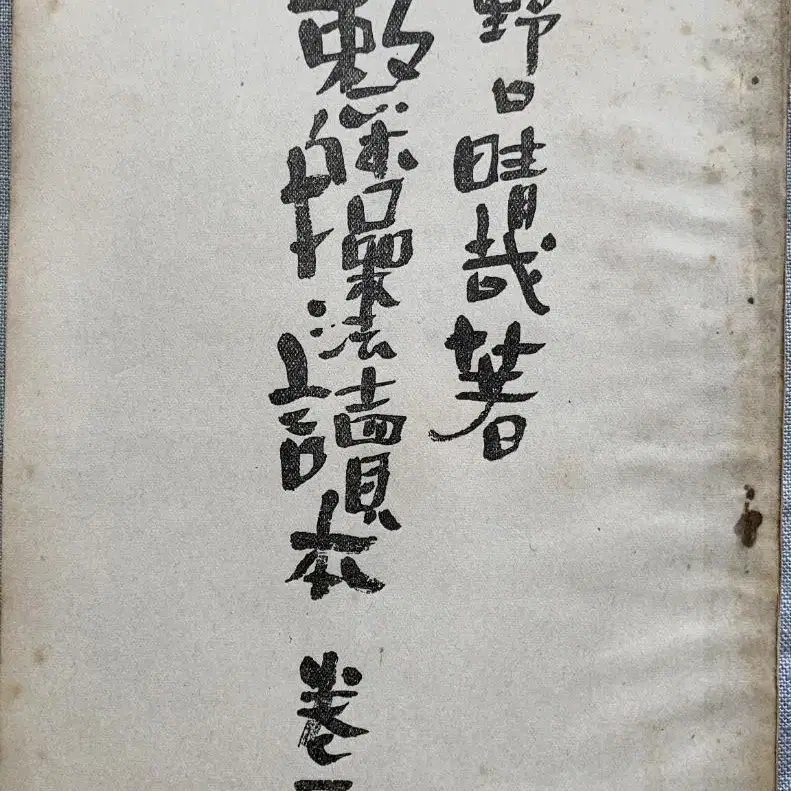 野口晴哉著
整体操法讀本 卷